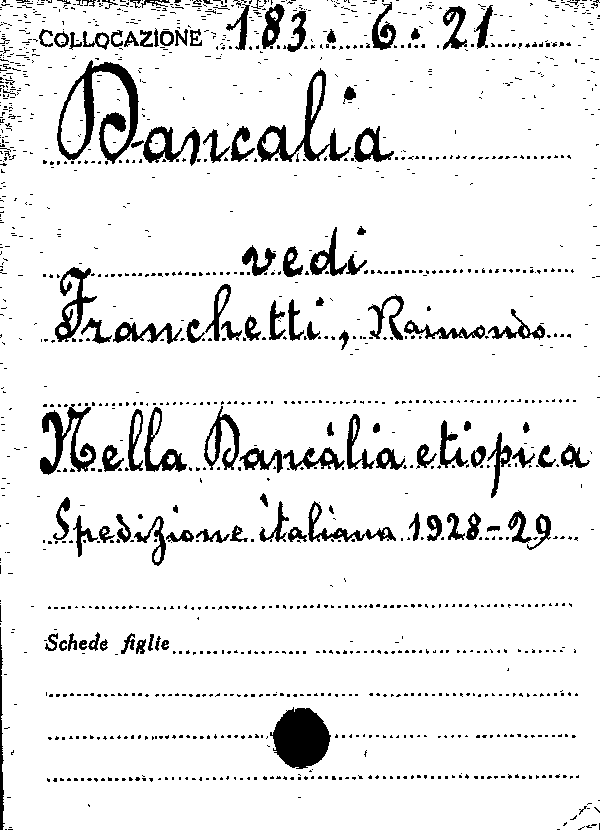 COLLOCAZIONE 183. 6. 21
Dancalia
vedi
Franchetti, Raimondo
Nella Dancàlia etiopica
Spedizione italiana 1928-29
Schede figlie